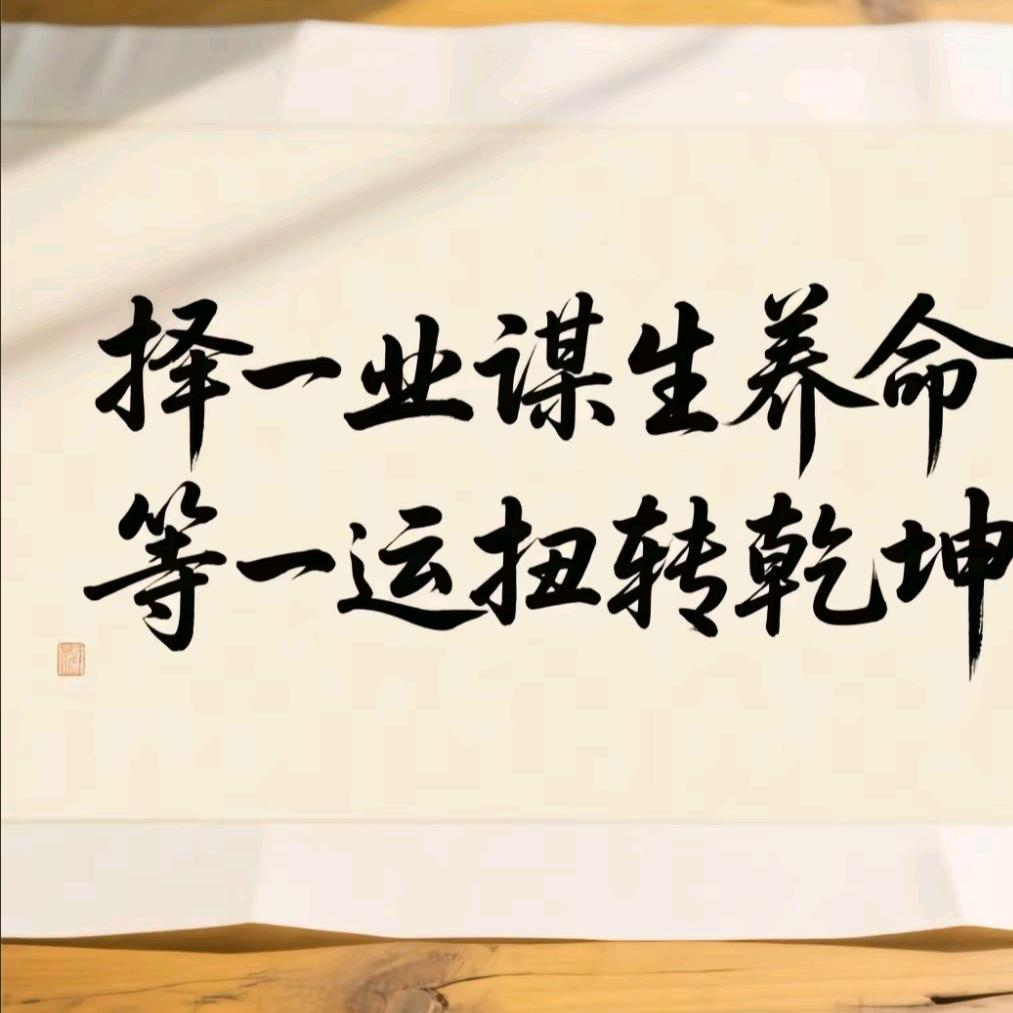 择一业谋生养命
等一运扭转乾坤